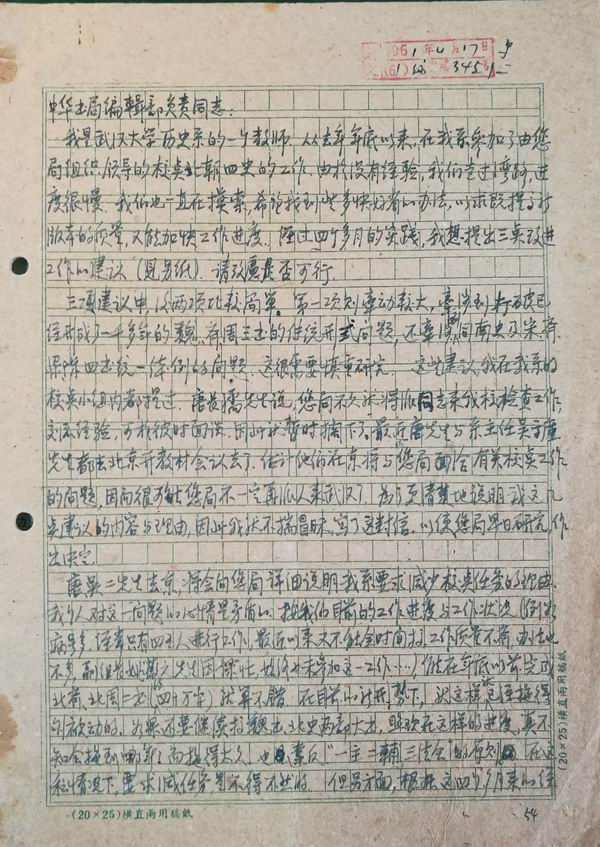 1961年4月17日
(61) 3451
中华书局编辑部负责同志：
我是武汉大学历史系的一个教师。从去年年底以来，在我系参加了由您
局组织领导的校点北朝四史的工作。由於没有经验，我们走过弯路，进
度很慢。我们也一直在摸索，希望找到些多快好省的办法，以求既提高新
版本的质量，又能加快工作进度。经过四个多月的实践，我想提出三点改进
工作的建议（见另纸）。请考虑是否可行。
三项建议中，后两项比较简单。第一项则牵动较大，牵涉到打破已
经形成了一千多年的魏、齐、周三书的传统形式问题，还牵涉同南史及宋、齐、
梁、陈四书统一体例的问题。这很需要慎重研究。这些建议，我在我系的
校点小组内都提过。唐长孺先生说，您局不久将派同志来我校检查工作，
交流经验，可于那时面谈。因此就暂时搁下了。最近唐先生与系主任吴于廑
先生都去北京开教材会议去了。估计他们在京将与您局面洽有关校点工作
的问题，因而很可能您局不一定再派人来武汉了。为了更清楚地说明我这几
点建议的内容与理由，因此我就不揣冒昧，写了这封信，以便您局早日研究，作
出决定。
唐吴二先生去京，将会向您局详细说明我系要求减少校点任务的理由。
我个人对这一问题的心情是矛盾的。按我们目前的工作进度与工作状况（
病号多，经常只有四五人进行工作，最近以来又不能全时间打，工作质量不高，办法也
不多，副组长姚薇元先生因课忙，始终也未参加这一工作……）能在年底以前完成
北齐、北周二书（四十万字）就算不错。在目前
的。如果还要继续打魏书、北史两部大书，照现在这样的进度，真不
知会拖到哪年！而拖得太久，也违反"一主二辅三结合"的原则。在这
种情况下，要求减任务，是不得不然的。但另方面，根据这四个多月来的经
(20×25)横直两用稿纸
(20×25)横直两用稿纸
54